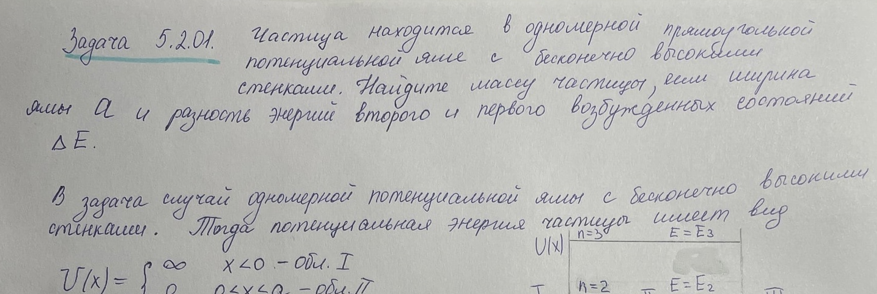 Задача 5.2.01. Частица находится в одномерной прямоугольной
потенциальной яме с бесконечно высокими
стенками. Найдите массу частицы, если ширина
ямы a и разность энергий второго и первого возбужденных состояний
ΔE.
В задача случай одномерной потенциальной ямы с бесконечно высокими
стенками. Тогда потенциальная энергия частицы имеет вид
U(x) n=3 E=E3
U(x) = { ∞ x<0 - обл. I
0 0<x<a - обл. II
I n=2 II E=E2 III